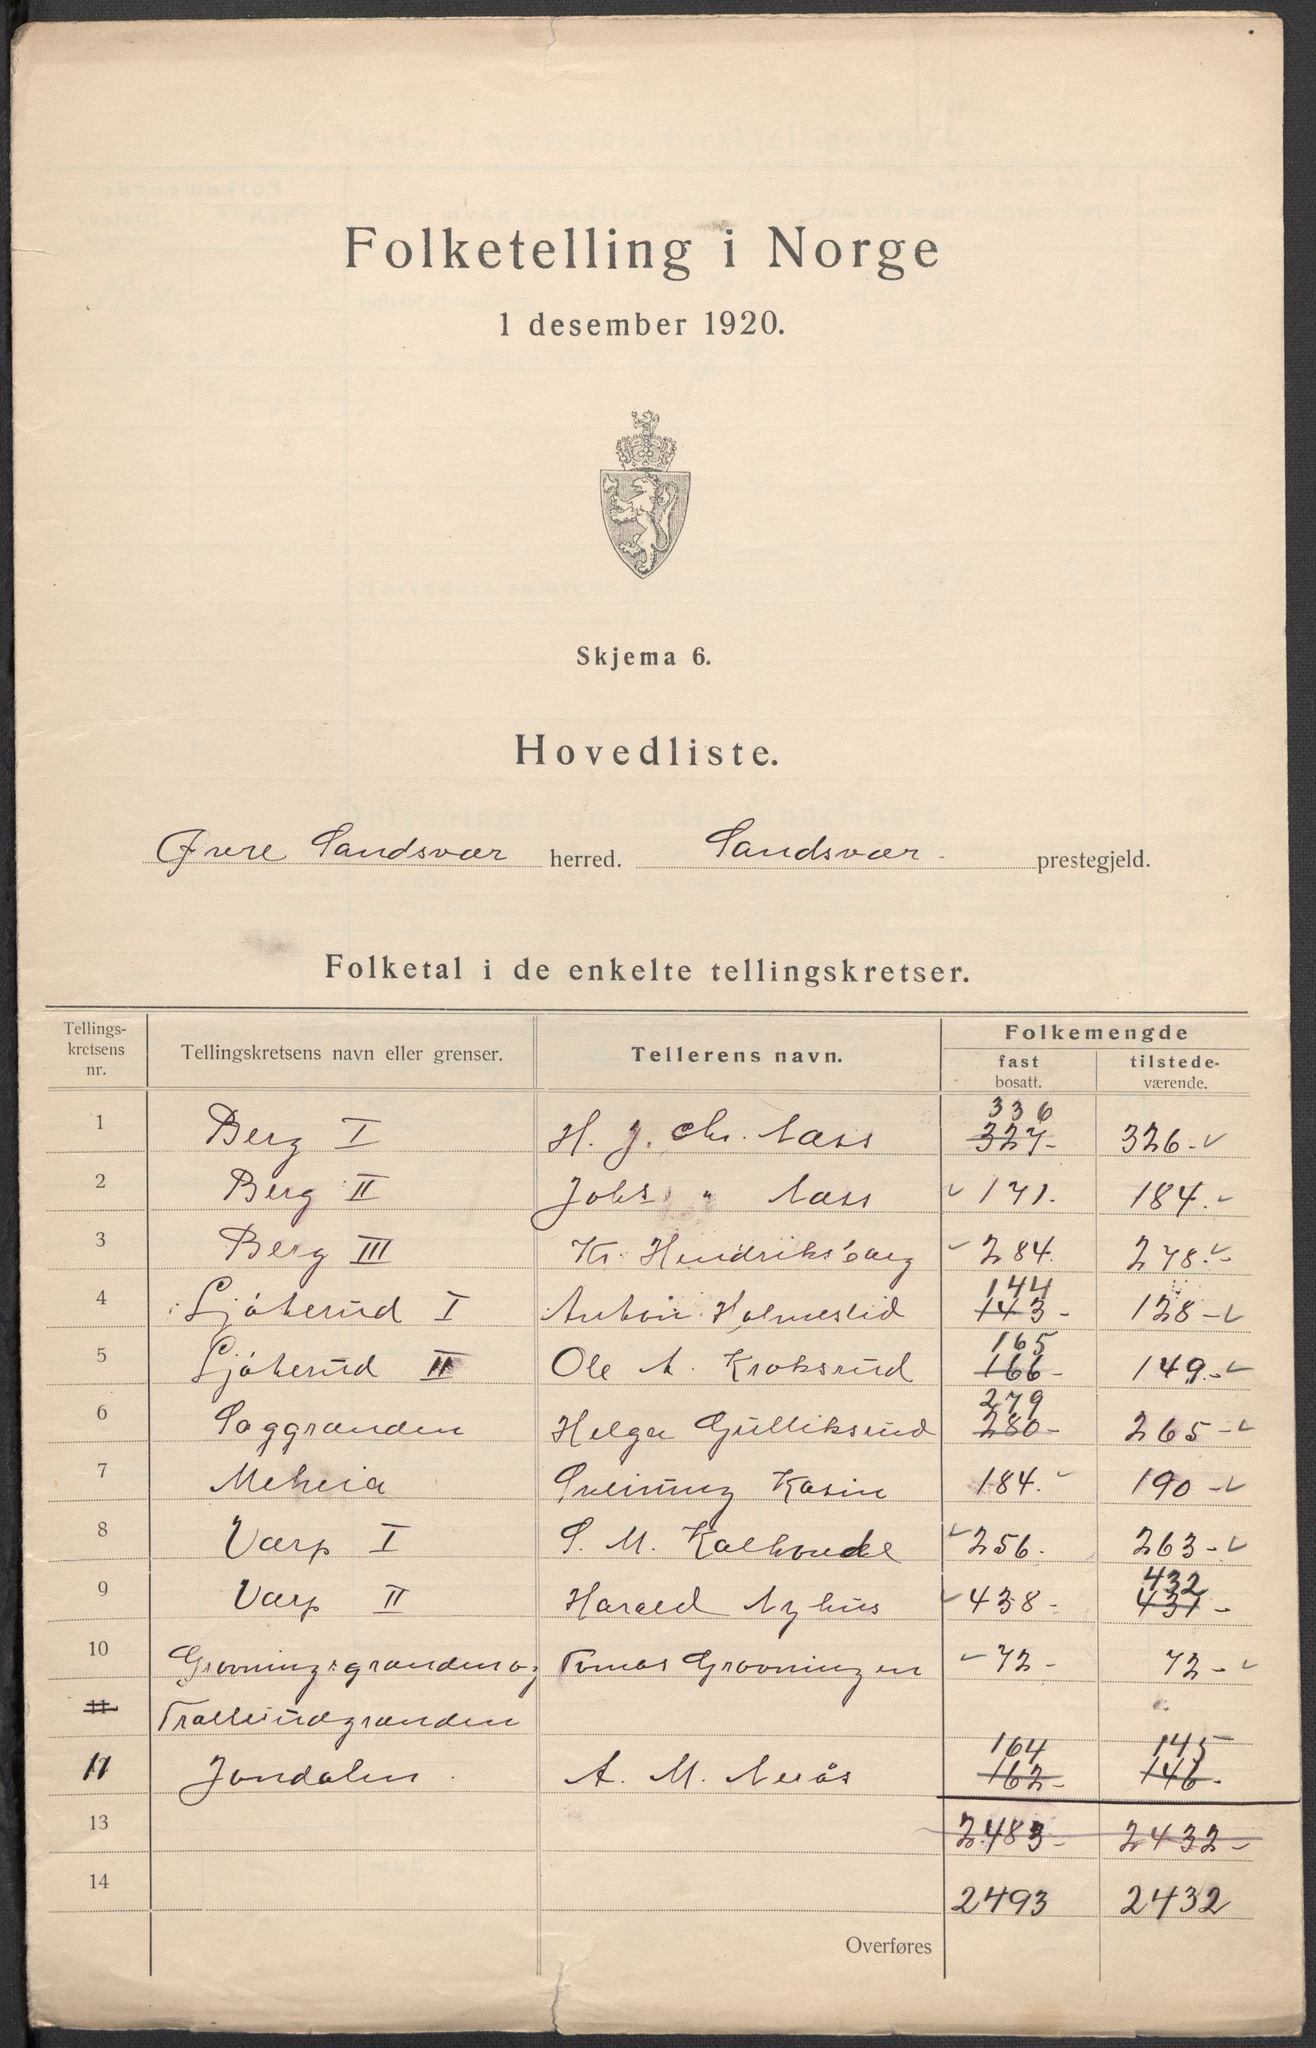 Folketelling i Norge
1 desember 1920.
Skjema 6.
Hovedliste.
Øvre Sandsvær herred. Sandsvær prestegjeld.
Folketal i de enkelte tellingskretser.
Tellings-
kretsens
nr.
Tellingskretsens navn eller grenser.
Tellerens navn.
Folkemengde
fast
bosatt.
tilstede-
værende.
336
1 Berg I H. J. Chr. Næss 327- 326-
2 Berg II Johs " Næss 171. 184.
3 Berg III Kr. Hendriksbarg 284. 278.-
144
4 Ljøterud I Anton Holmeslid 143- 128-
165
5 Ljøterud II Ole A. Kroksrud 166- 149.-
279
6 Saggrenden Helge Gulliksrud 280- 265-
7 Meheia Sveinung Kasin 184. 190-
8 Varp I S. M. Kalhovde 256. 263-
432
9 Varp II Harald Nyhus 438- 431-
10 Grovningsgrenden og Tomas Grovningen 72- 72-
11 Trollerudgrenden
164 145
11 Jondalen. A. M. Nerås 162- 146-
13 2483- 2432-
14 2493 2432
Overføres